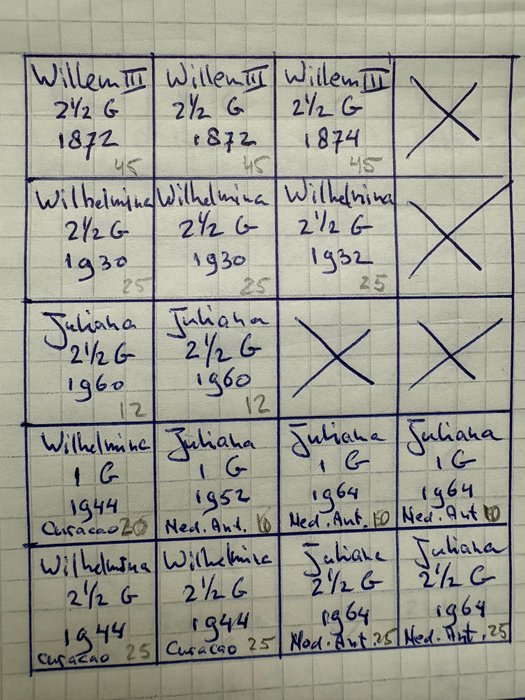 Willem III
2½ G
1872
45
Willem III
2½ G
1872
45
Willem III
2½ G
1874
45
Wilhelmina
2½ G
1930
25
Wilhelmina
2½ G
1930
25
Wilhelmina
2½ G
1932
25
Juliana
2½ G
1960
12
Juliana
2½ G
1960
12
Wilhelmina
1 G
1944
Curacao 20
Juliana
1 G
1952
Ned. Ant. 10
Juliana
1 G
1964
Ned. Ant. 10
Juliana
1 G
1964
Ned. Ant 10
Wilhelmina
2½ G
1944
Curacao 25
Wilhelmina
2½ G
1944
Curacao 25
Juliana
2½ G
1964
Ned. Ant. 25
Juliana
2½ G
1964
Ned. Ant. 25